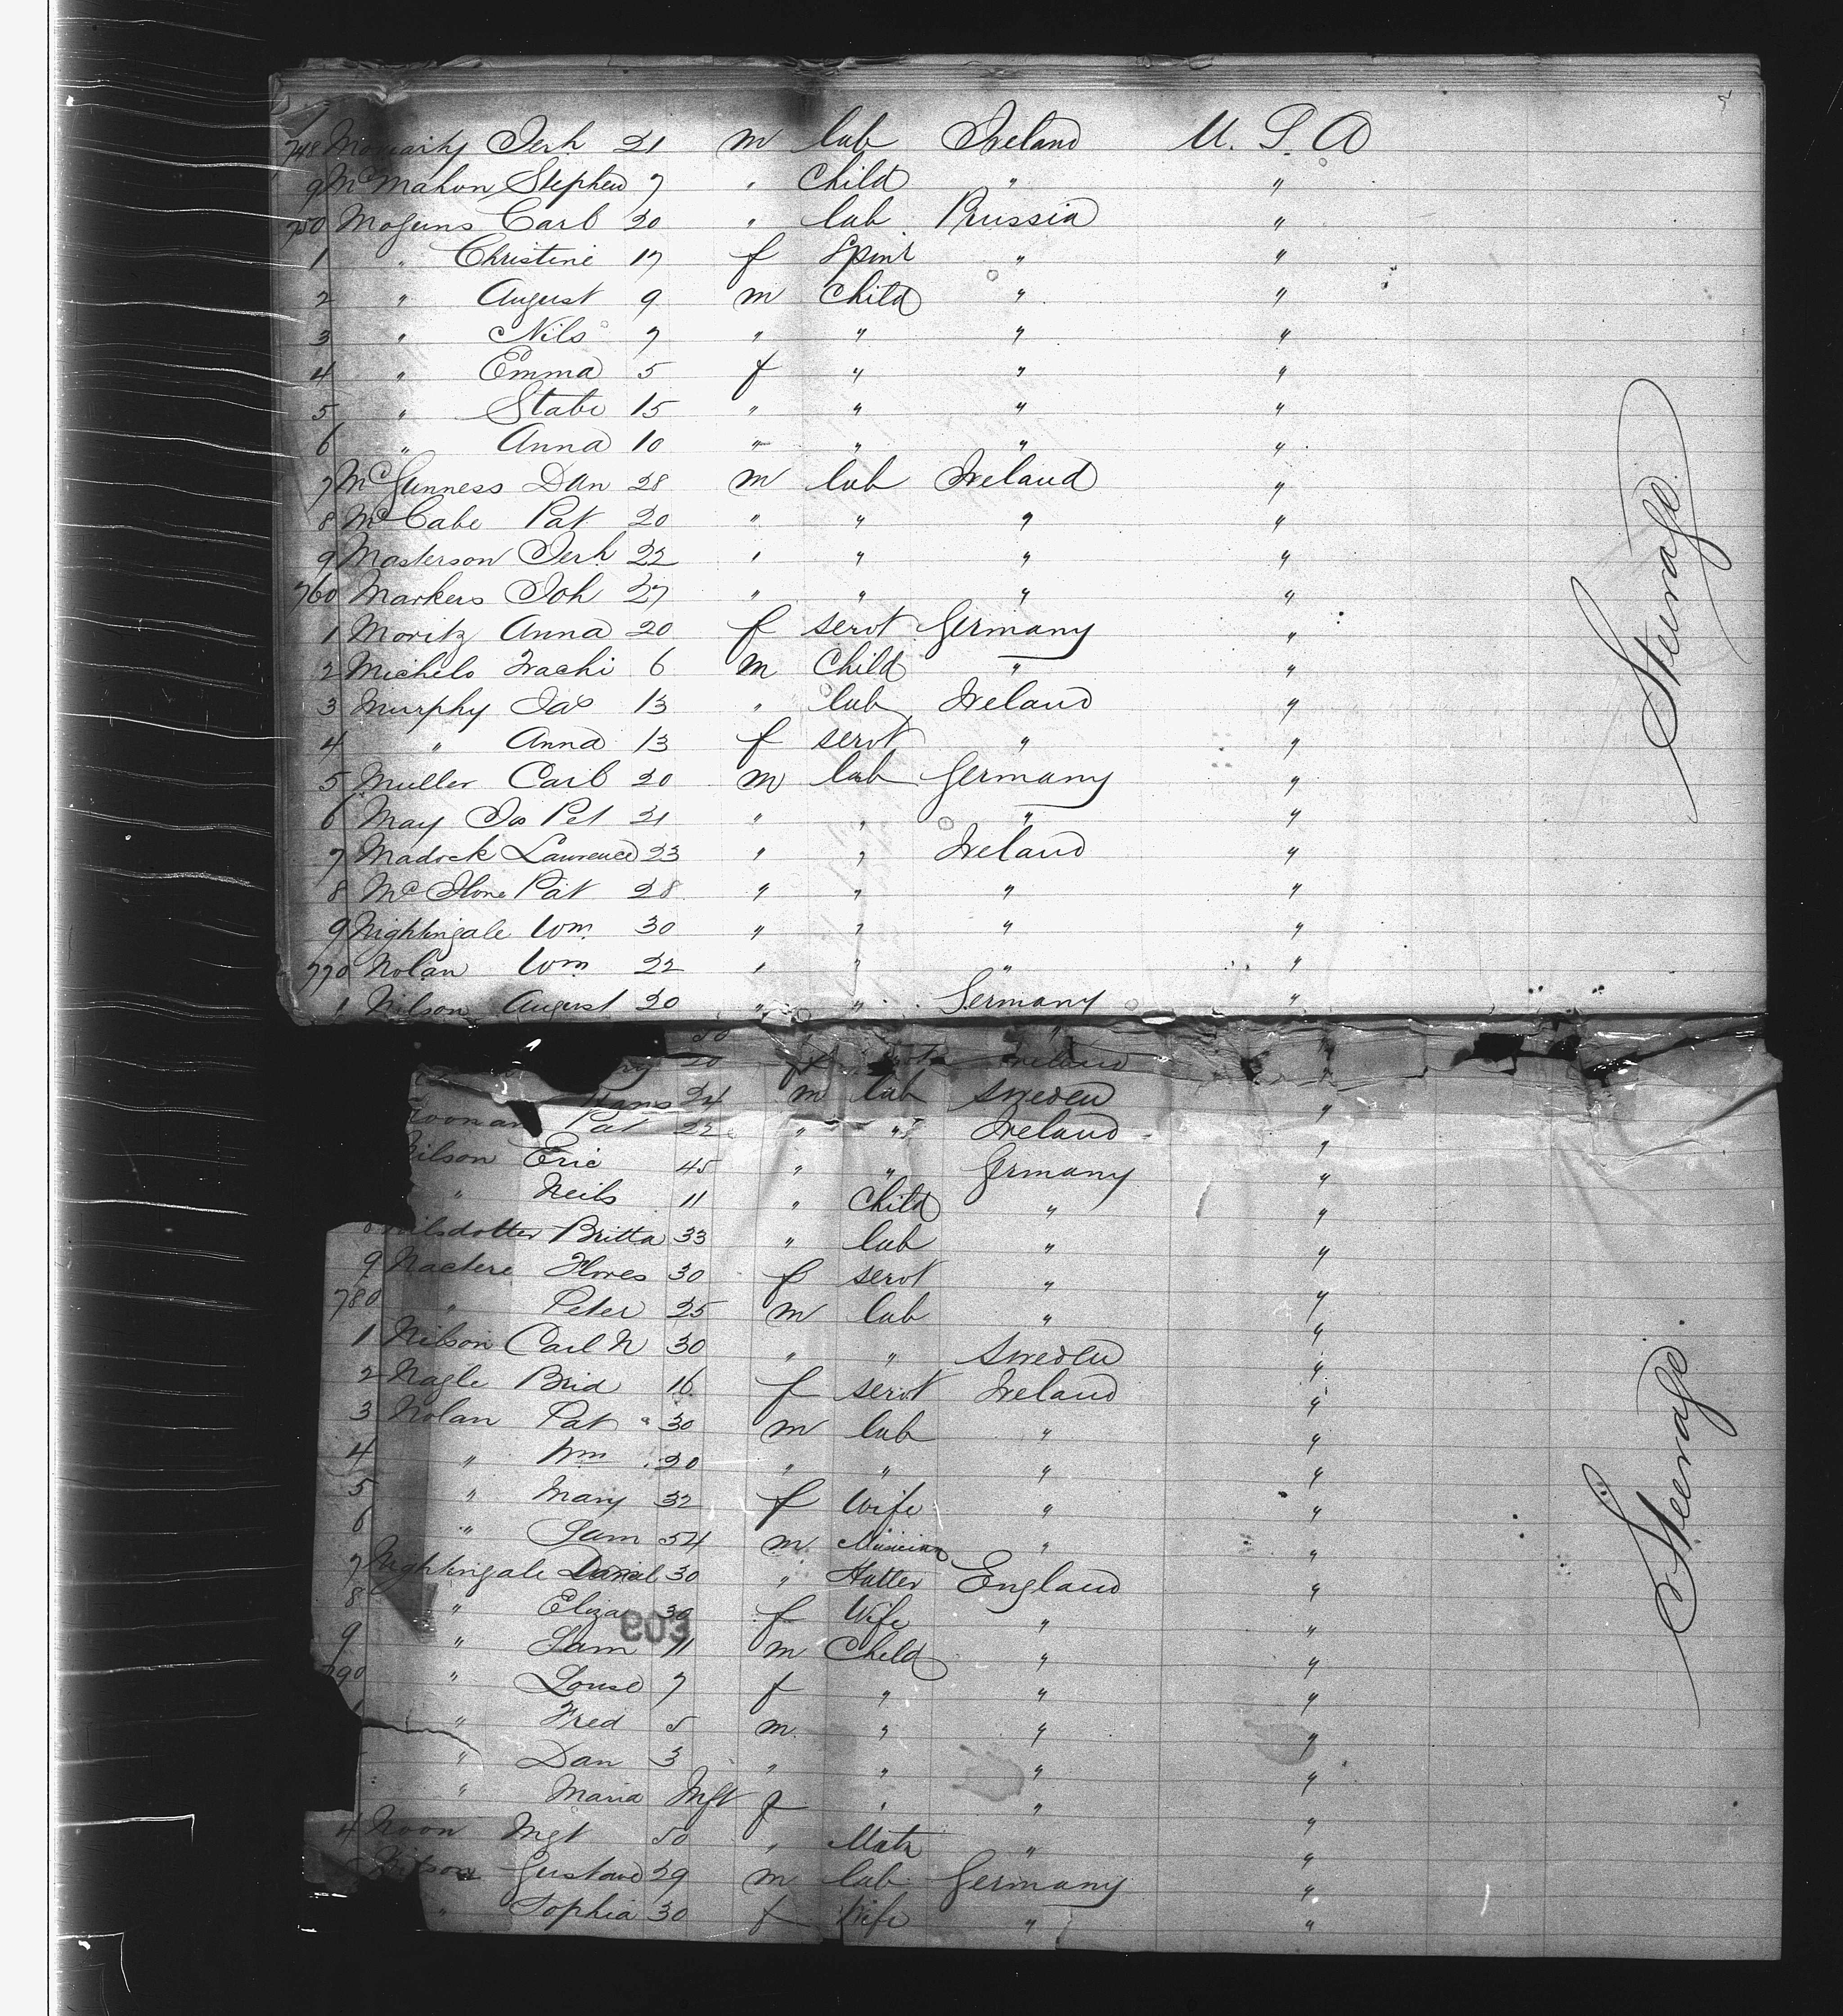 748 Moriarty Jerh 21 m lab Ireland U. S. A
9 McMahon Stephen 7 " Child " "
750 Moguns Carl 20 " lab Prussia "
1 " Christine 17 f Spinr " "
2 " August 9 m Child " "
3 " Nils 7 " " " "
4 " Emma 5 f " " "
5 " Stabe 15 " " " "
6 " Anna 10 " " " "
7 McGunness Dan 28 m lab Ireland "
8 McCabe Pat 20 " " " "
9 Masterson Jerh 22 " " " "
760 Markers Joh 27 " " " "
1 Moritz Anna 20 f servt Germany "
2 Michels 6 m Child " "
3 Murphy Jas 13 " lab Ireland "
4 " Anna 13 f servt " "
5 Muller Carl 20 m lab Germany "
6 May Jos Pet 21 " " " "
7 Madock Lawrence 23 " " Ireland "
8 Pat 28 " " " "
9 Nightingale Wm 30 " " " "
770 Nolan Wm 22 " " " "
1 Nilson August 20 " " Germany "
Steerage
50 "
20 f Ireland "
Hans 24 m lab Sweden "
Noonan Pat 22 " " Ireland "
Nilson Eric 45 " " Germany "
" Neils 11 " Child " "
8 Nilsdotter Britta 33 " lab " "
9 Nactere 30 f servt " "
780 " Peter 25 m lab " "
1 Nilson Carl N 30 " " Sweden "
2 Nagle Brid 16 f servt Ireland "
3 Nolan Pat 30 m lab " "
4 " Wm 20 " " " "
5 " Mary 32 f Wife " "
6 " Sam 54 m Musician " "
7 Nightingale Daniel 30 " Hatter England "
8 " Eliza 30 f Wife " "
9 " Sam 11 m Child " "
790 " Louse 7 f " " "
1 " Fred 5 m " " "
" Dan 3 " " " "
" Maria Inft f " " "
4 Noon Mgt 50 " Matr " "
Nilson Gustave 29 m lab Germany "
" Sophia 30 f Wife " "
Steerage